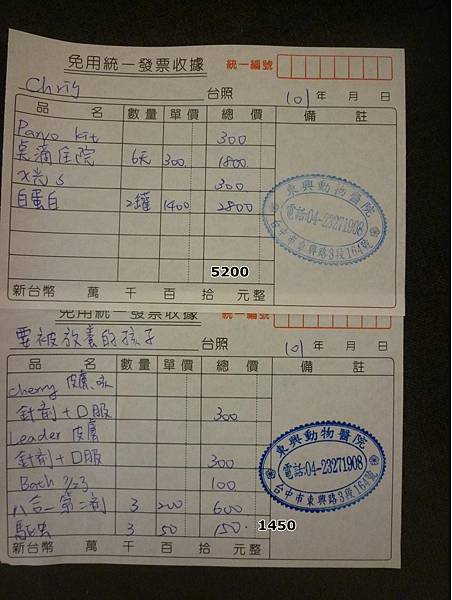 免用統一發票收據 統一編號
Chris 台照 101 年 月 日
品 名 數量 單價 總 價 備 註
Parvo kit 300
点滴住院 6天 300 1800
X光 S 300
白蛋白 2罐 1400 2800
東興動物醫院
電話:04-23271908
台中市東興路3段164號
5200
新台幣 萬 千 百 拾 元整
免用統一發票收據 統一編號
要被放養的孩子 台照 101 年 月 日
品 名 數量 單價 總 價 備 註
cherry 皮膚.咳
針劑+口服 300
Leader 皮膚
針劑+口服 300
Bath 7/23 100
八合一第二劑 3 200 600
驅虫 3 50 150.
1450
東興動物醫院
電話:04-23271908
台中市東興路3段164號
新台幣 萬 千 百 拾 元整